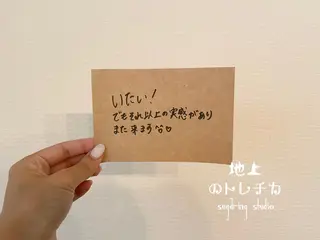 いたい!
でもそれ以上の実感があり
また来ます
地上
のトレチカ
studio